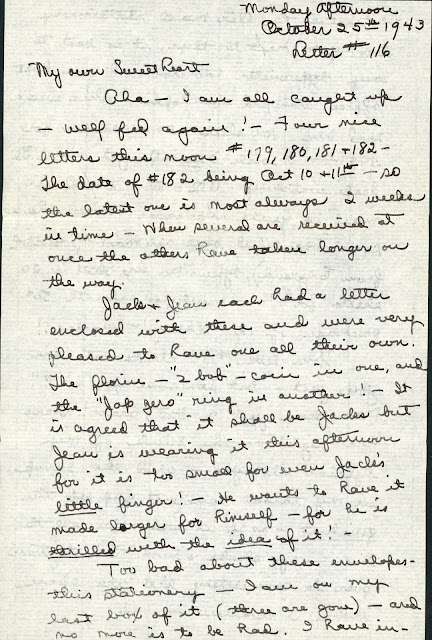 Monday Afternoon
October 25th 1943
Letter # 116
My own Sweetheart
Aha - I am all caught up
- well fed again! - Four nice
letters this noon # 179, 180, 181 + 182 -
The date of #182 being Oct 10 + 11th - so
the latest one is most always 2 weeks
in time - When several are received at
once the others have taken longer on
the way.
Jack + Jean each had a letter
enclosed with these and were very
pleased to have one all their own.
The florin - "2 bob" - coin in one, and
the "Jap zero" ring in another! - It
is agreed that it shall be Jacks but
Jean is wearing it this afternoon
for it is too small for even Jack's
little finger! - He wants to have it
made larger for himself - for he is
thrilled with the idea of it! -
Too bad about these envelopes -
this stationery - I am on my
last box of it (three are gone) - and
no more is to be had. I have in-